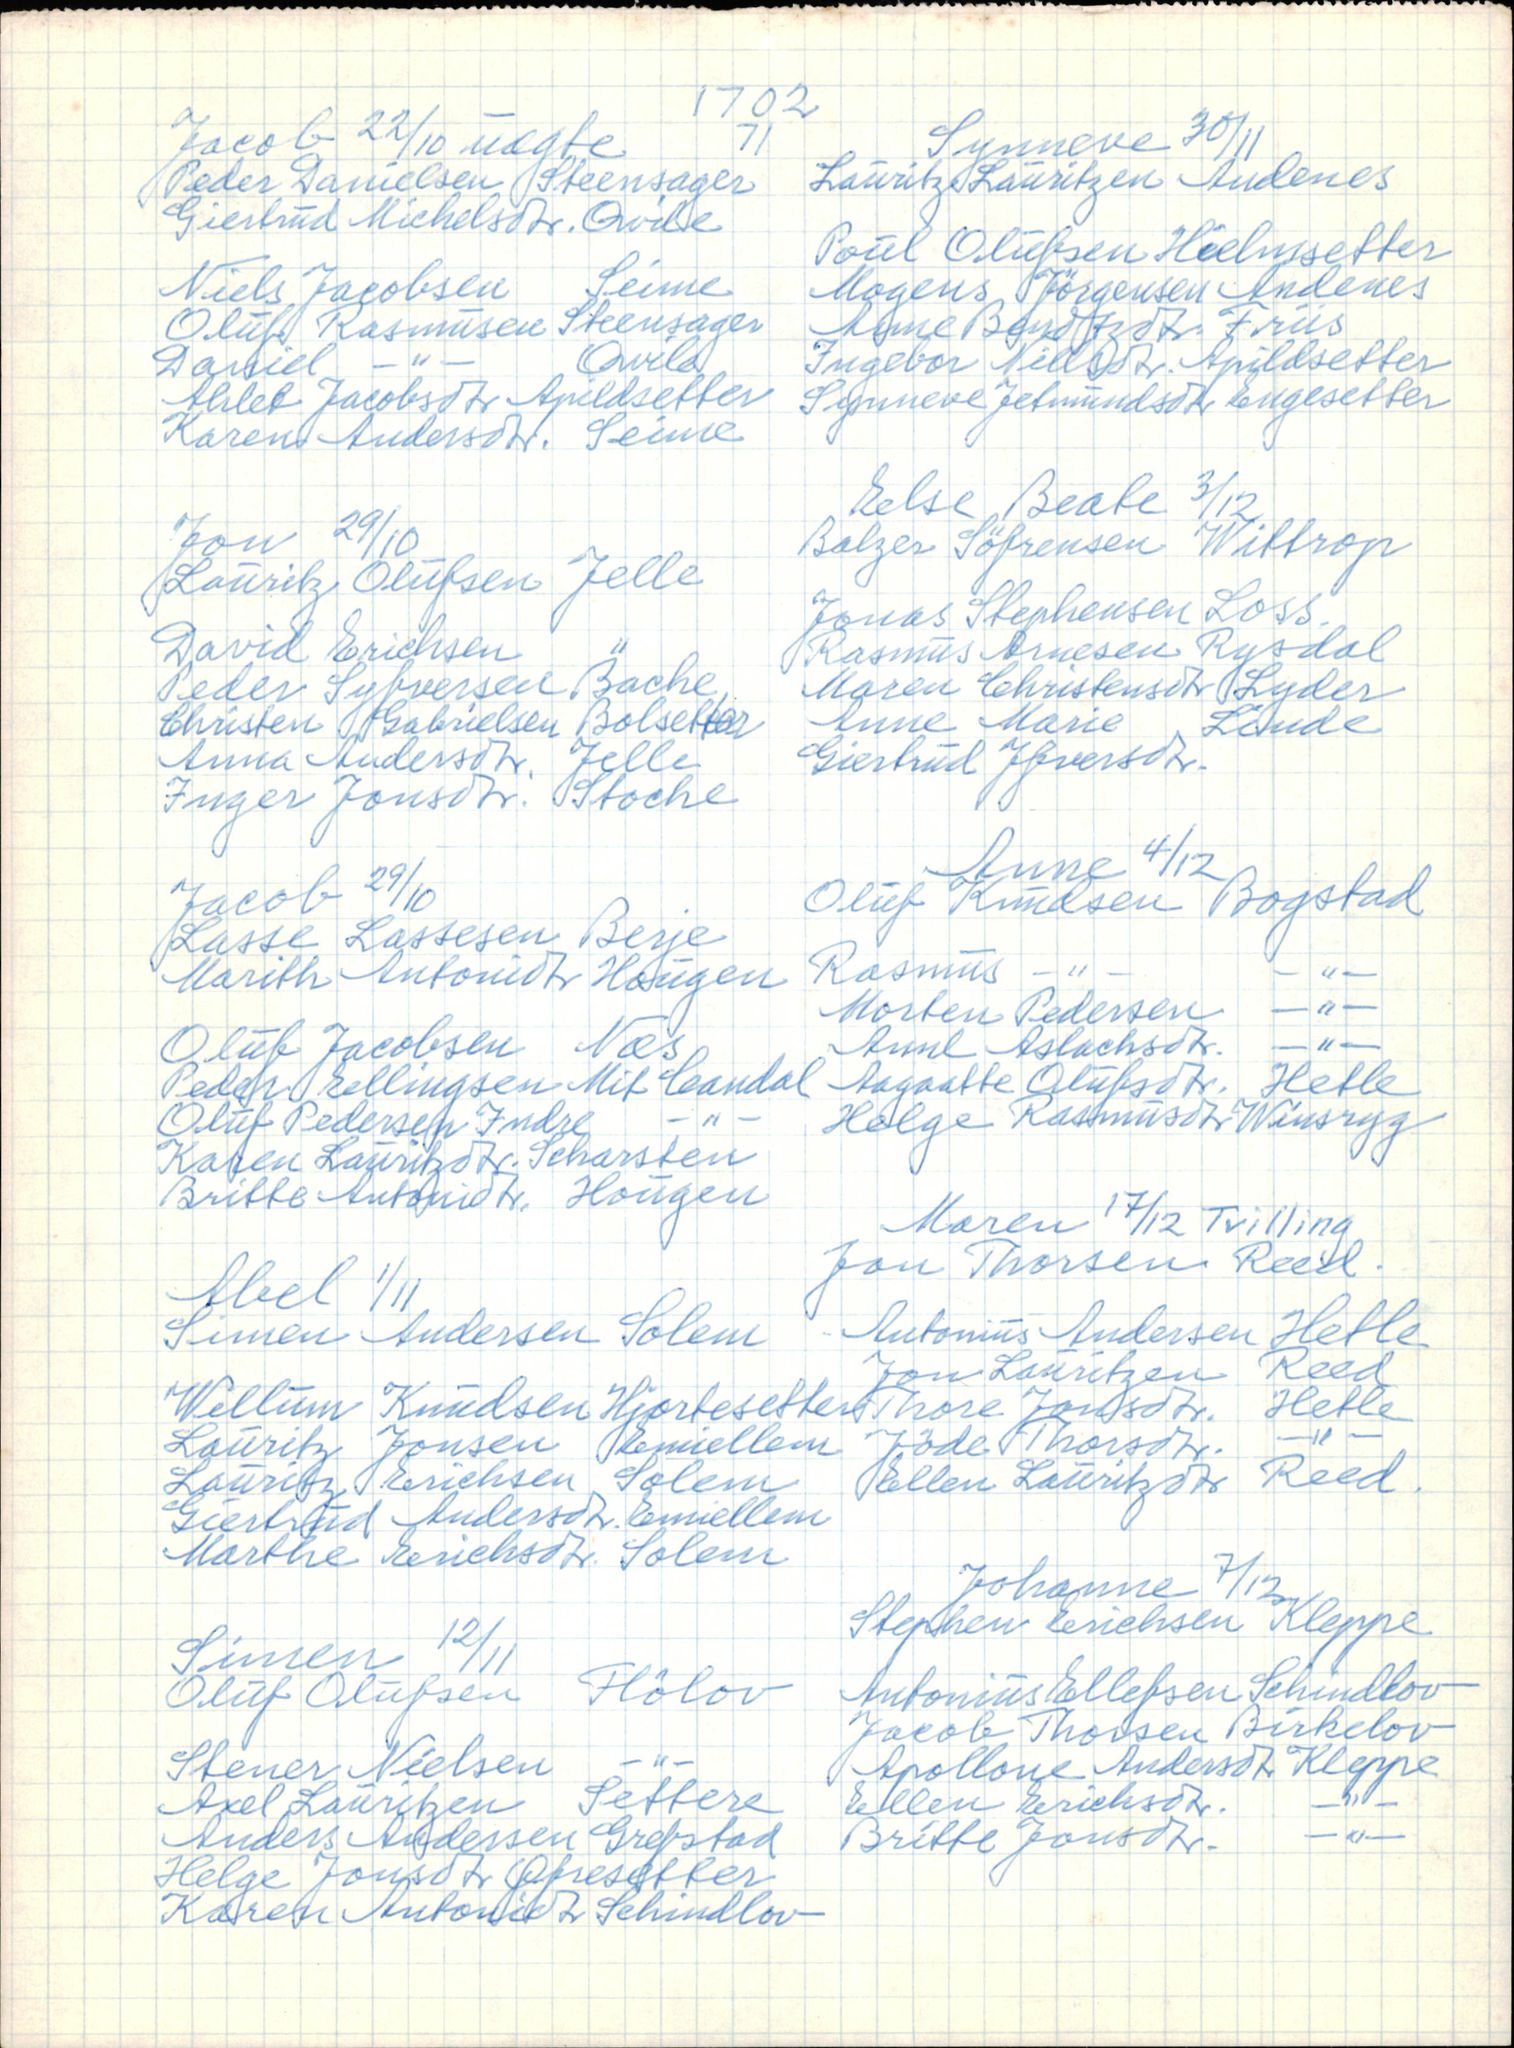 1702
71
Jacob 22/10 uægte
Peder Danielsen Steensager
Giertrud Michelsdtr. Qvile
Niels Jacobsen Seime
Oluf Rasmusen Steensager
Daniel -"- Qvile
Ahlet Jacobsdtr Apildsetter
Karen Andersdtr. Seime
Jon 29/10
Lauritz Olufsen Jelle
David Erichsen "
Peder Syfversen Bache
Christen Gabrielsen Bolsetter
Anna Andersdtr. Jelle
Inger Jonsdtr. Stoche
Jacob 29/10
Lasse Lassesen Berje
Marith Antonidtr Hougen
Oluf Jacobsen Næs
Peder Ellingsen Mit Candal
Oluf Pedersen Indre -"-
Karen Lauritzdtr. Scharsten
Britte Antonidtr. Hougen
Abel 1/11
Simen Andersen Solem
Wellum Knudsen Hjortesetter
Lauritz Jonsen Emiellem
Lauritz Erichsen Solem
Giertrud Andersdtr. Emiellem
Marthe Erichsdtr. Solem
Simen 12/11
Oluf Olufsen Flölov
Stener Nielsen -"-
Axel Lauritzen Settere
Anders Andersen Grefstad
Helge Jonsdtr Ofresetter
Karen Antonidtr Schindlov
Synneve 30/11
Lauritz Lauritzen Andenes
Poul Olufsen Hielmsetter
Mogens Jörgensen Andenes
Anne Bendtzdtr. Friis
Ingebor Nillsdtr. Apildsetter
Synneve Jetmundsdtr Engesetter
Else Beate 3/12
Balzer Söfrensen Wittrop
Jonas Stephensen Loss.
Rasmus Arnesen Rysdal
Maren Christensdtr Lyder
Anne Marie Linde
Giertrud Ifversdtr.
Anne 4/12
Oluf Knudsen Bogstad
Rasmus -"- -"-
Morten Pedersen -"-
Anne Aslachsdtr. -"-
Aagaatte Olufsdtr. Hetle
Helge Rasmusdtr Winsryg
Maren 17/12 Tvilling
Jon Thorsen Reed.
Antonius Andersen Hetle
Jon Lauritzen Reed
Thore Jonsdtr. Hetle
Jöde Thorsdtr. -"-
Ellen Lauritzdtr Reed.
Johanne 7/12
Stephen Erichsen Kleppe
Antonius Ellefsen Schindlov
Jacob Thorsen Birkelov
Apollone Andersdtr Kleppe
Ellen Erichsdtr. -"-
Britte Jonsdtr. -"-